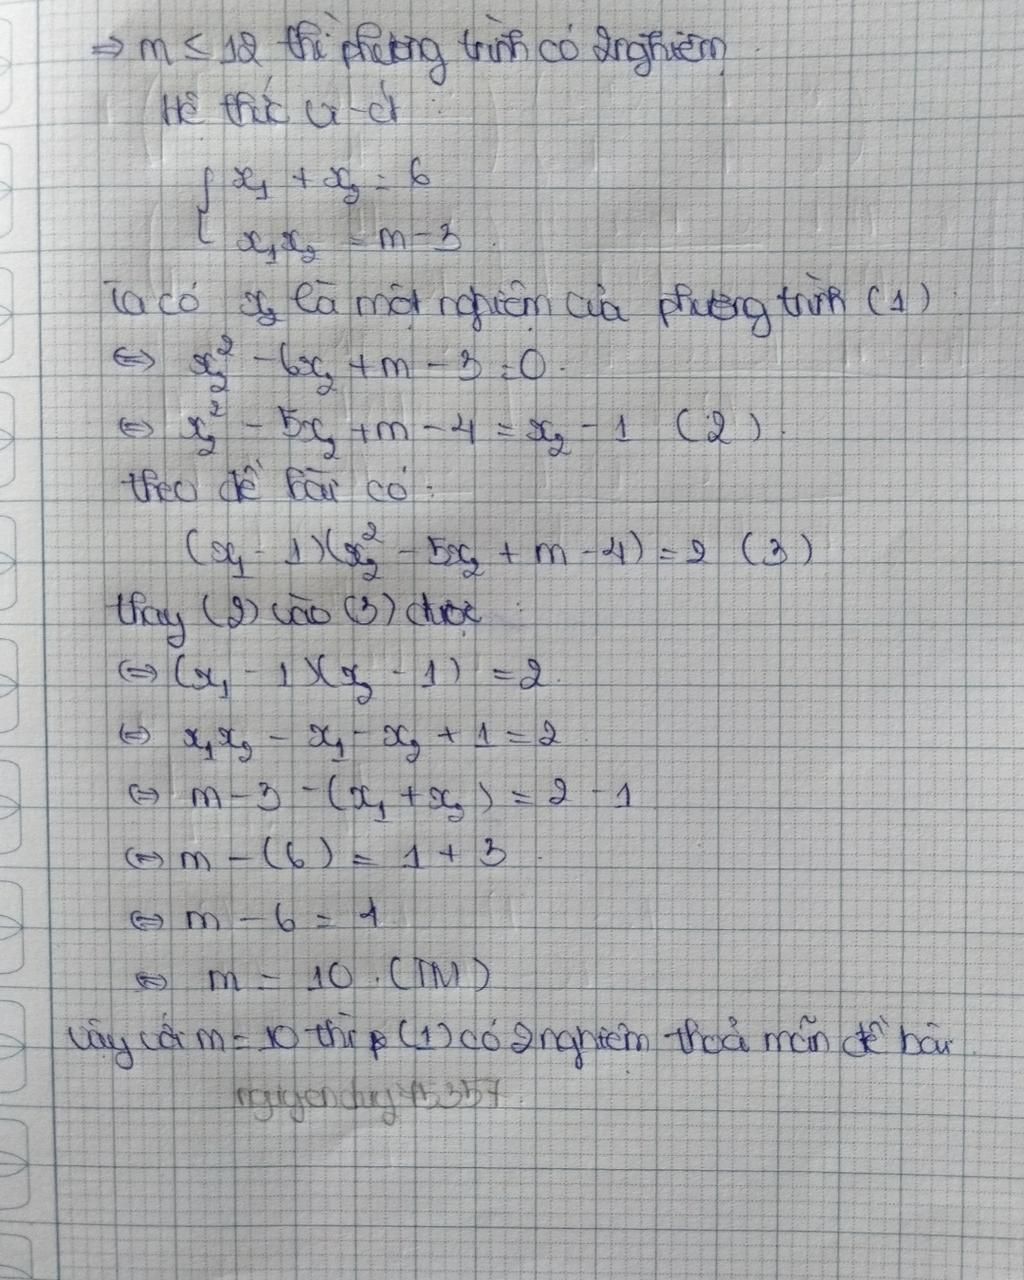 ⇒ m ≤ 12 thì phương trình có 2 nghiệm
Hệ thức Vi-ét
{ x₁ + x₂ = 6
x₁x₂ = m - 3
Ta có x₂ là một nghiệm của phương trình (1)
⇔ x₂² - 6x₂ + m - 3 = 0.
⇔ x₂² - 5x₂ + m - 4 = x₂ - 1 (2).
theo đề bài có:
(x₁ - 1)(x₂² - 5x₂ + m - 4) = 2 (3)
thay (2) vào (3) được:
⇔ (x₁ - 1)(x₂ - 1) = 2.
⇔ x₁x₂ - x₁ - x₂ + 1 = 2
⇔ m - 3 - (x₁ + x₂) = 2 - 1
⇔ m - (6) = 1 + 3
⇔ m - 6 = 4
⇔ m = 10. (TM)
Vậy với m = 10 thì p (1) có 2 nghiệm thoả mãn đề bài.